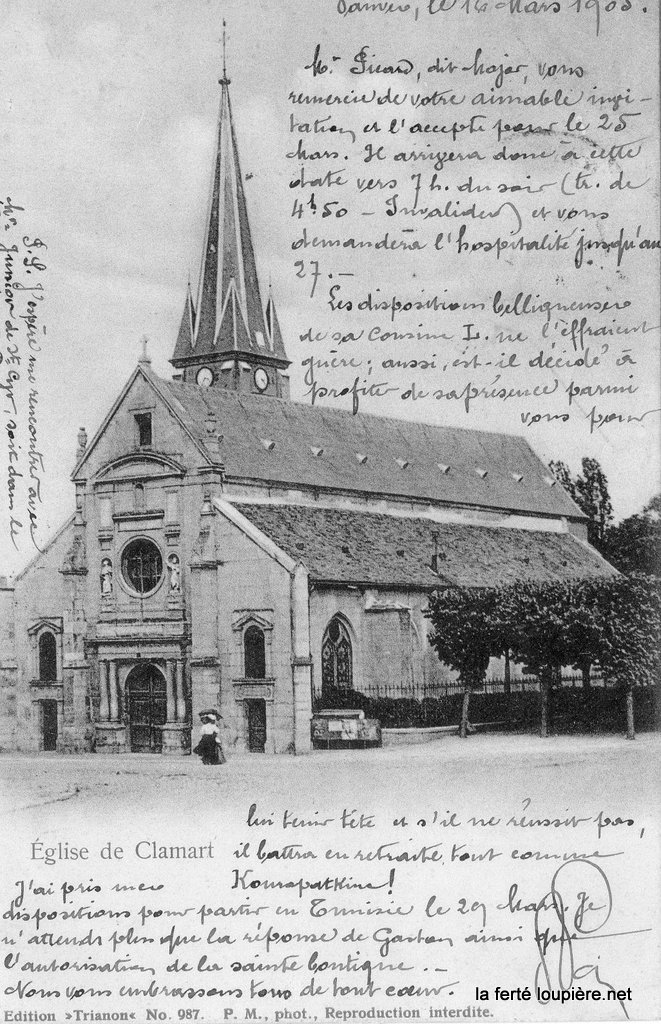 le 14 Mars 1905.
Mr Picard, dit Major, vous
remercie de votre aimable invi-
tation et l'accepte pour le 25
Mars. Il arrivera donc à cette
date vers 7 h. du soir (tr. de
4h50 – Invalides) et vous
demandera l'hospitalité jusqu'au
27. –
Les dispositions belliqueuses
de sa cousine L. ne l'effraient
guère ; aussi, est-il décidé à
profiter de sa présence parmi
vous pour
lui tenir tête et s'il ne réussit pas,
il battra en retraite, tout comme
Kouropatkine !
P.S. J'espère me rencontrer avec
Mr Junior de St Cyr, soit dans le
Église de Clamart
J'ai pris mes
dispositions pour partir en Tunisie le 29 Mars. Je
n'attends plus que la réponse de Gaston ainsi que
l'autorisation de la sainte boutique. –
Nous vous embrassons tous de tout cœur.
la ferté loupière.net
Edition »Trianon« No. 987. P. M., phot., Reproduction interdite.